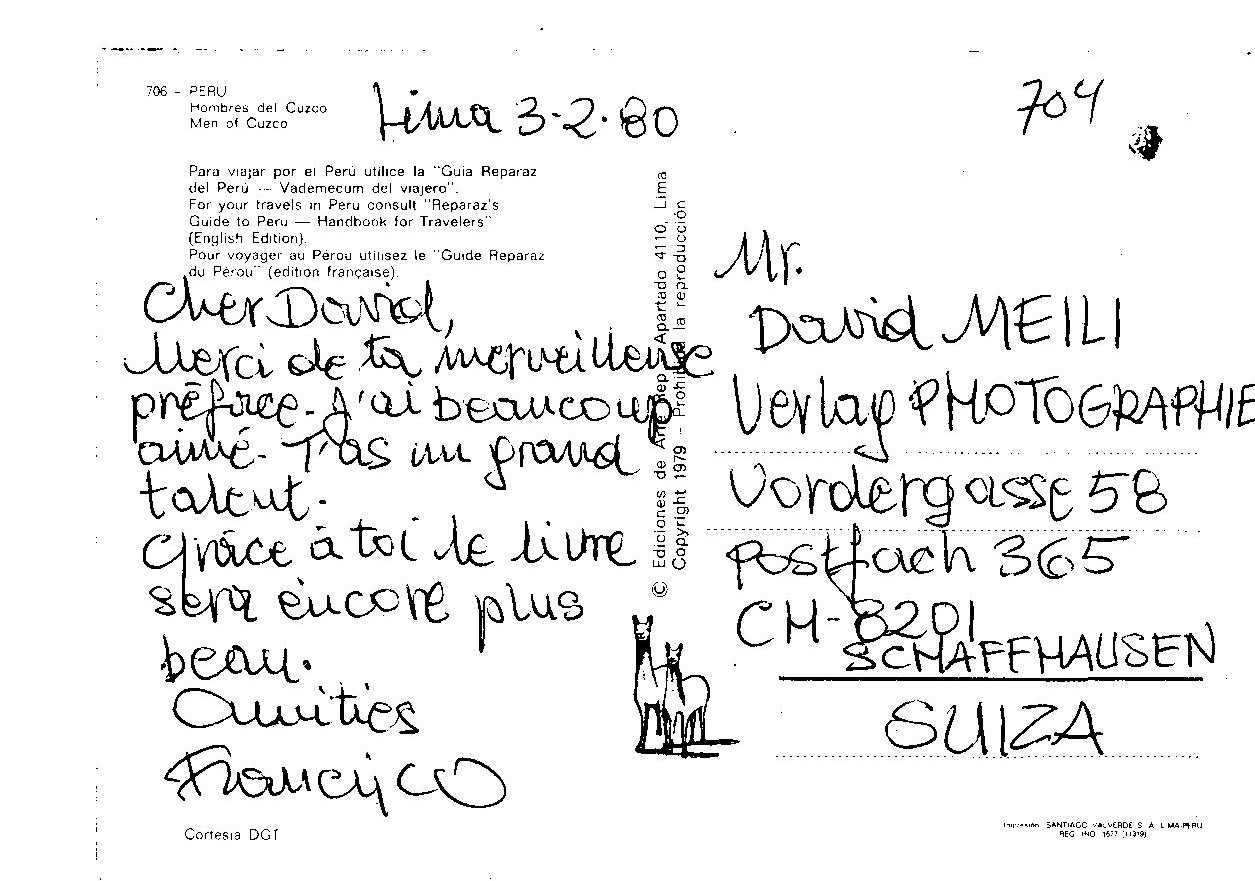 706 - PERU
Hombres del Cuzco
Men of Cuzco
Lima 3-2-80
704
Para viajar por el Perú utilice la "Guia Reparaz
del Perú — Vademecum del viajero".
For your travels in Peru consult "Reparaz's
Guide to Peru — Handbook for Travelers"
(English Edition).
Pour voyager au Pérou utilisez le "Guide Reparaz
du Pérou" (edition française).
Cher David,
Merci de ta merveilleuse
préface. J'ai beaucoup
aimé. T'as un grand
talent.
Grâce à toi le livre
sera encore plus
beau.
Amitiés
Francisco
Cortesia DGT
© Ediciones de Arte Apartado 4110, Lima
Copyright 1979 - la reproducción
Mr.
David MEILI
Verlag PHOTOGRAPHIE
Vordergasse 58
Postfach 365
CH-8201
SCHAFFHAUSEN
SUIZA
Impresión SANTIAGO VALVERDE S. A. LIMA-PERU
REG. IND.